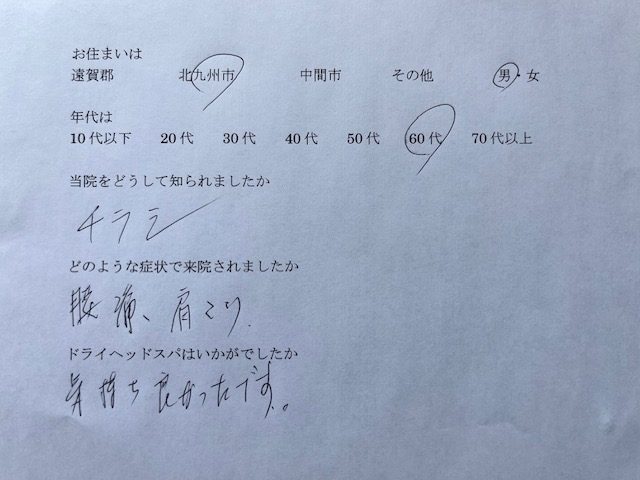 お住まいは
遠賀郡 北九州市 中間市 その他 男・女
年代は
10代以下 20代 30代 40代 50代 60代 70代以上
当院をどうして知られましたか
チラシ
どのような症状で来院されましたか
腰痛、肩こり.
ドライヘッドスパはいかがでしたか
気持ち良かったです。